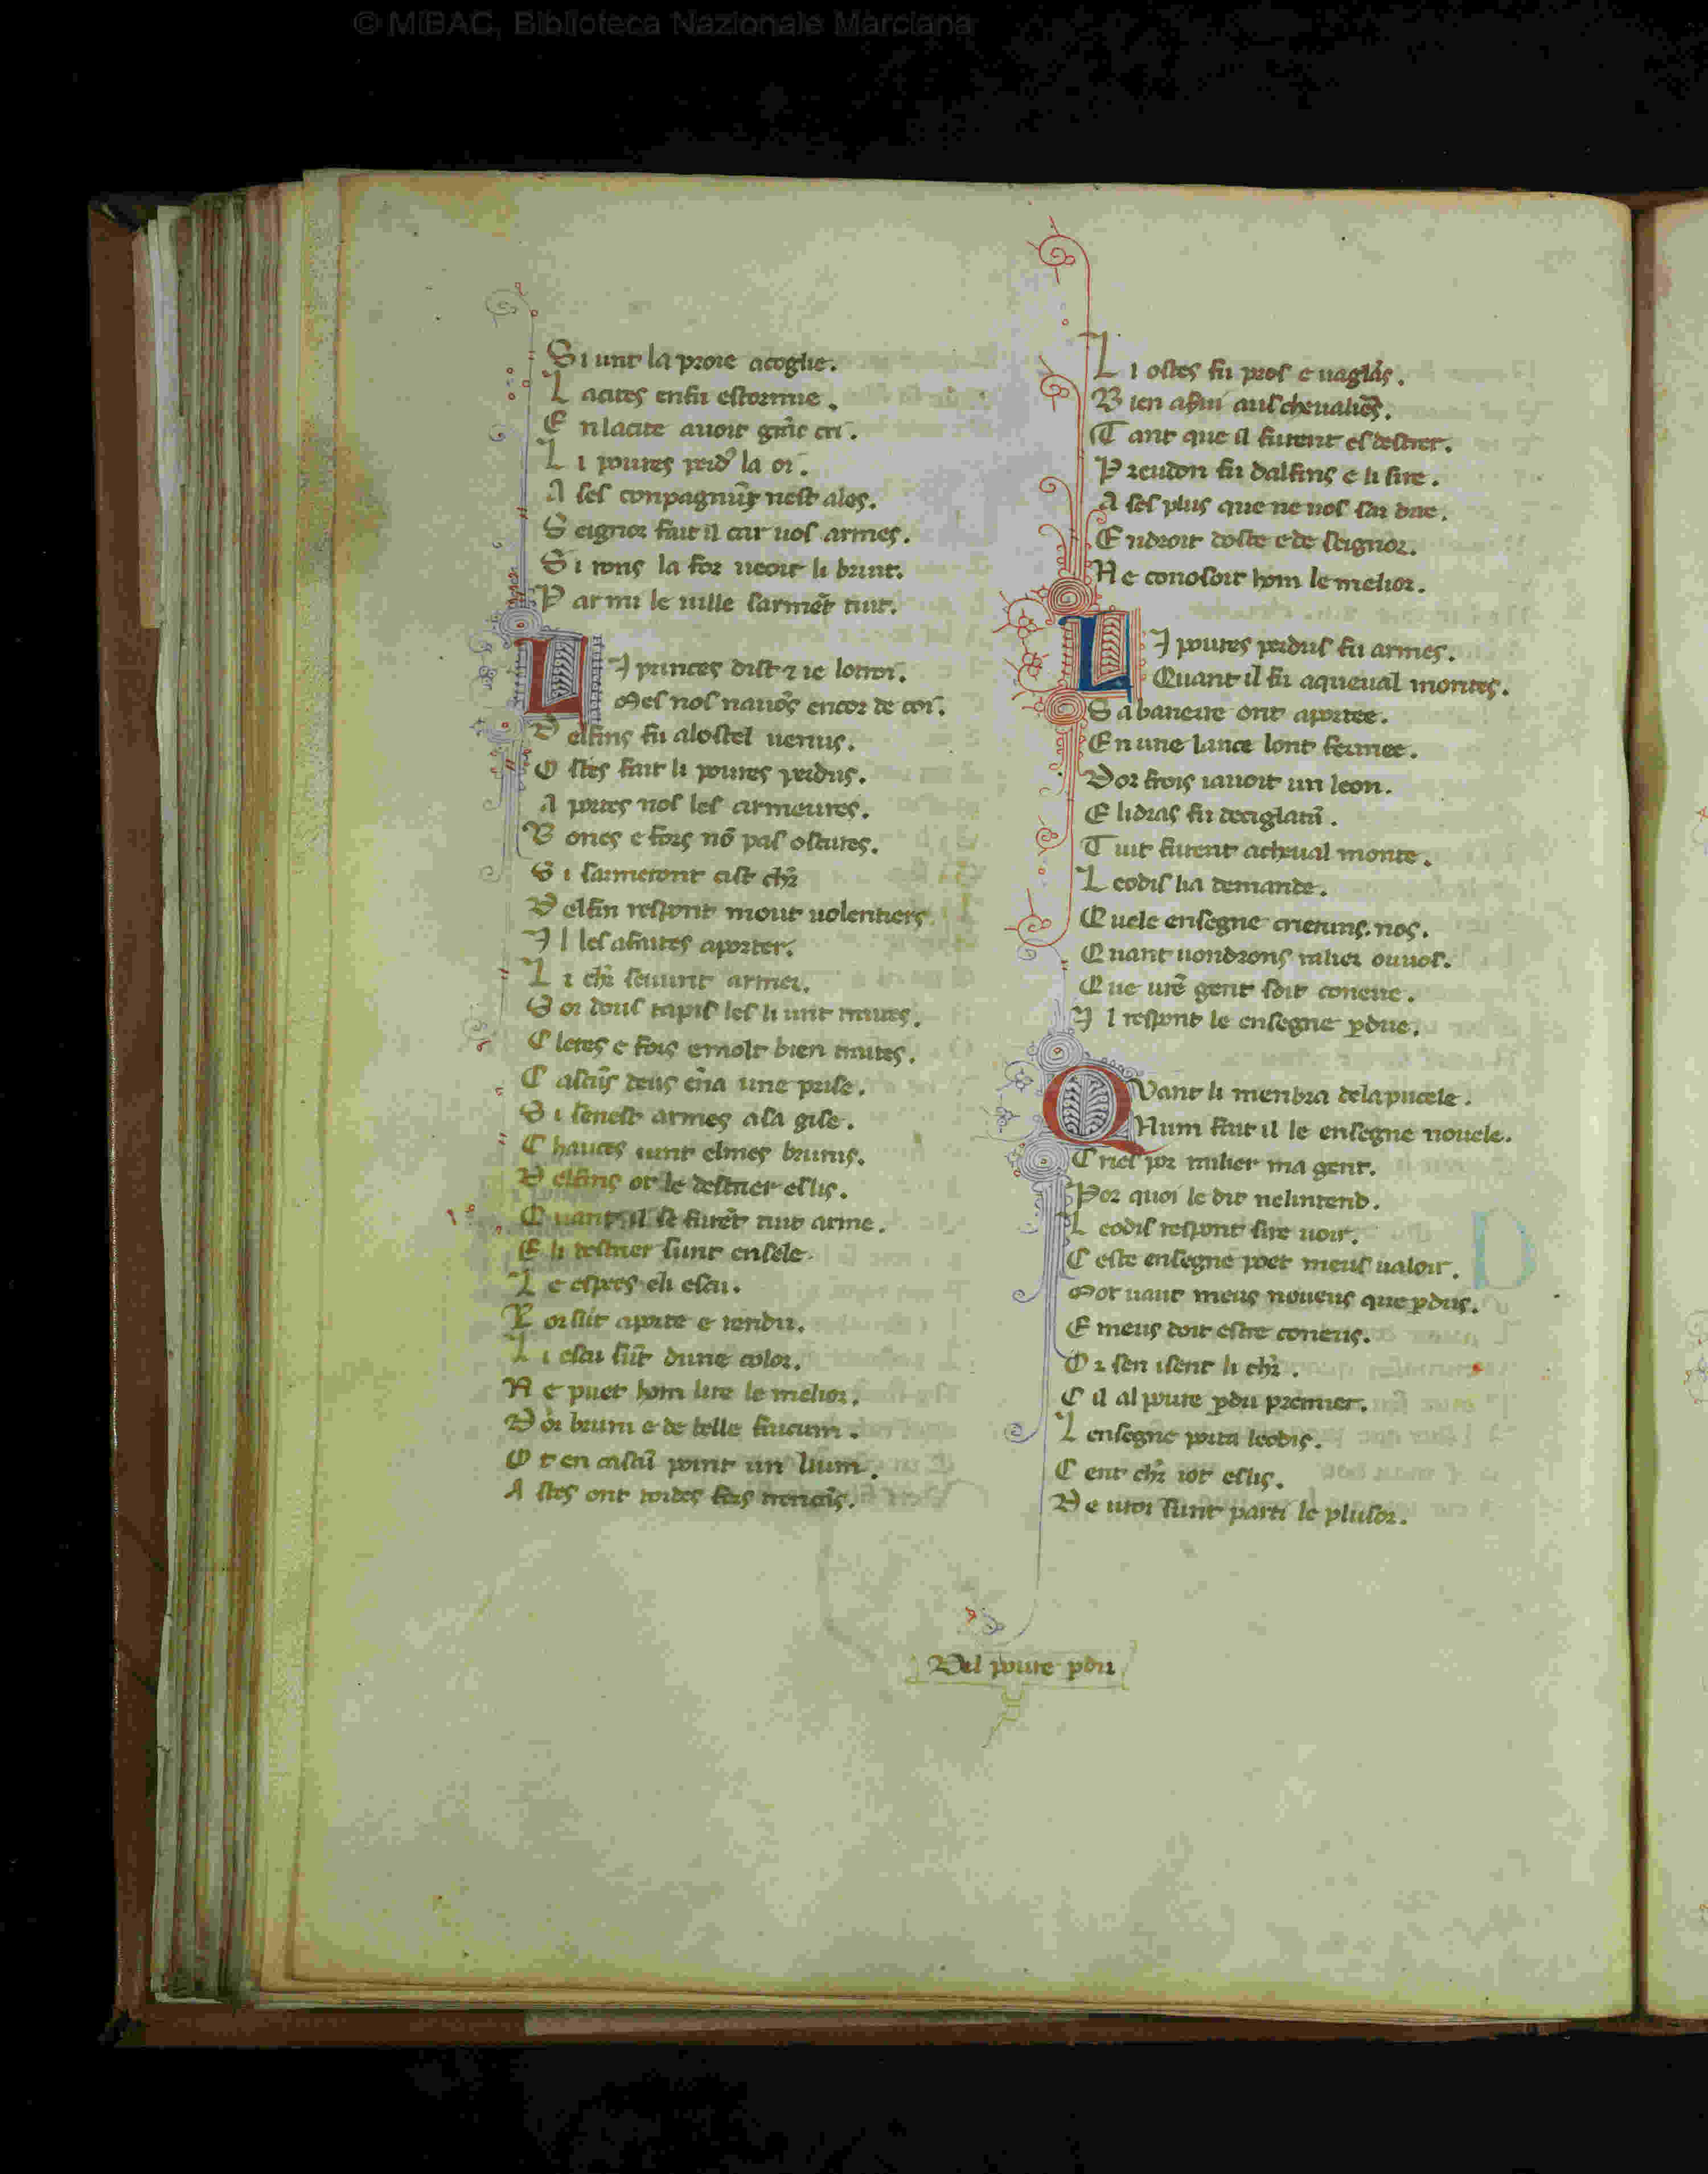 © MiBAC, Biblioteca Nazionale Marciana
Si unt la proie acoglie.
L a cites en fu estormie.
E n la cite auoit grãt cri.
L i poures perdꝰ la oi.
A ses conpagnũs nest ales.
S eignor fait il car uos armes.
S i irons la for ueoir li bruit.
P ar mi le uille sarmẽt tuit.
L I princes dist ⁊ ie lotroi.
Mes nos nauõs encor de coi.
D elfins fu a lostel uenus.
O stes fait li poures perdus.
A portes nos les armeures.
B ones e fors nõ pas oscures.
S i sarmeront cist chr̃
D elfin respont mout uolentiers
I l les a faites aporter.
L i chr̃ seuunt armer.
S or dous tapis les li unt mises.
C leres e fors e molt bien
C ascũs deus ẽna une prise.
S i senest armes a sa gise.
C hauces unt elmes brunis.
D elfins ot le destrier eslis.
Q uant il se furẽt tuit arme.
E li destrier sunt ensele.
L e espees eli escu.
R or sũt aporte e rendu.
L i escu sũt dune color.
N e puet hom lire le melior.
D or brum e de belle faicum.
O t en cascũ point un lium.
A stes ont roides fers trencãs.
L i ostes fu pros e uaglãs.
B ien afui aus cheualiẽs.
T ant que il furent es destrer.
P reudon fu dalfins e li sire.
A ses plus que ne uos sai dire.
E ndroit doste e de seignor.
N e conosoit hom le melior.
L I poures perdus fu armes.
Quant il fu a queual montes.
S a baneire ont aportee.
E n une lance lont fermee.
D or frois iauoit un leon.
E li dras fu de ciglatũ.
T uit furent a cheual monte.
L eodis li a demande.
Q uele ensegne crieruns nos.
Q uant uondrons ralier o uuos.
Q ue urẽ gent soit coneue.
I l respont le ensegne ꝑdue.
Q Vant li menbra de la pucele.
Num fait il le ensegne nouele.
C riés por ralier ma gent.
P or quoi le dit nelintend.
L eodis respont sire uoir.
C este ensegne poet meus ualoir.
Mot uaut meus noueus que ꝑdus.
E meus doit estre coneus.
O r sen isent li chr̃.
C il al poure ꝑdu premier.
L ensegne porta leodis.
C ent chr̃ iot eslis.
D e uroi sunt parti le plusor.
D
Del poure ꝑdu